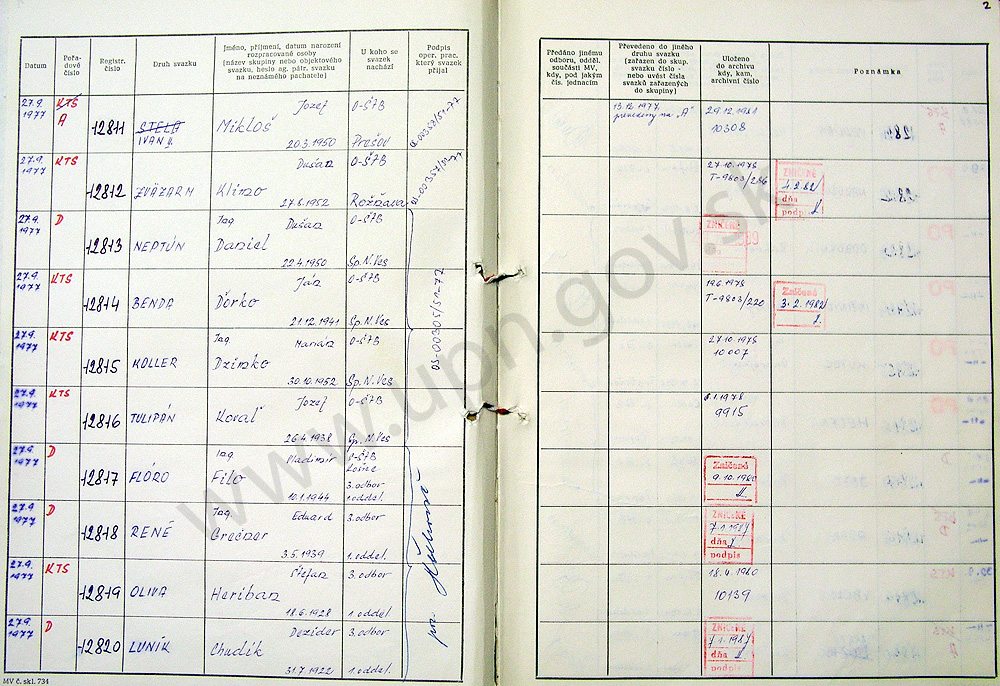 2
Datum
Pořadové číslo
Registr. číslo
Druh svazku
Jméno, příjmení, datum narození rozpracované osoby (název skupiny nebo objektového svazku, heslo ag. pátr. svazku na neznámého pachatele)
U koho se svazek nachází
Podpis oper. prac. který svazek přijal
Předáno jinému odboru, odděl. součásti MV, kdy, pod jakým čís. jednacím
Převedeno do jiného druhu svazku (zařazen do skup. svazku číslo - nebo uvést čísla svazků zařazených do skupiny)
Uloženo do archivu kdy, kam, archivní číslo
Poznámka
27.9. 1977 KTS A 12811 STELA IVAN II. Jozef Mikloš 20.3.1950 O-ŠTB Prešov
13.12.1977 "A" 29.12.1981 10308
27.9. 1977 KTS 12812 ZVÁZARM Dušan Klinzo 27.8.1952 O-ŠTB Rožňava
27.10.1978 T-9803/286 ZNIČENÉ dňa podp.
27.9. 1977 D 12813 NEPTÚN Ing Dušan Daniel 22.4.1950 O-ŠTB Sp.N.Ves
ZNIČENÉ
27.9. 1977 KTS 12814 BENDA Ján Ďorko 21.12.1941 O-ŠTB Sp.N.Ves
19.6.1978 T-9803/220 Zničené 3.2.1982
27.9. 1977 KTS 12815 KOLLER Ing Marián Dzimko 30.10.1952 O-ŠTB Sp.N.Ves
27.10.1978 10007
27.9. 1977 KTS 12816 TULIPÁN Jozef Koraľ 26.4.1938 O-ŠTB Sp.N.Ves
1.1978 9915
27.9. 1977 D 12817 FLÓRO Ing Vladimír Filo 10.1.1944 O-ŠTB 3.odbor 1.oddel.
Zničené 9.10.1980
27.9. 1977 D 12818 RENÉ Ing. Eduard Grečner 3.5.1939 3.odbor 1.oddel.
ZNIČENÉ 7.1.1987 dňa podpis
27.9. 1977 KTS 12819 OLIVA Štefan Heriban 18.6.1928 3.odbor 1.oddel.
18.4.1980 10139
27.9. 1977 D 12820 LUNÍK Dezider Chudík 31.7.1922 3.odbor 1.oddel.
ZNIČENÉ 7.1.1987 dňa podpis
OS-00305/S1-77
MV č. skl. 734
www.upn.gov.sk